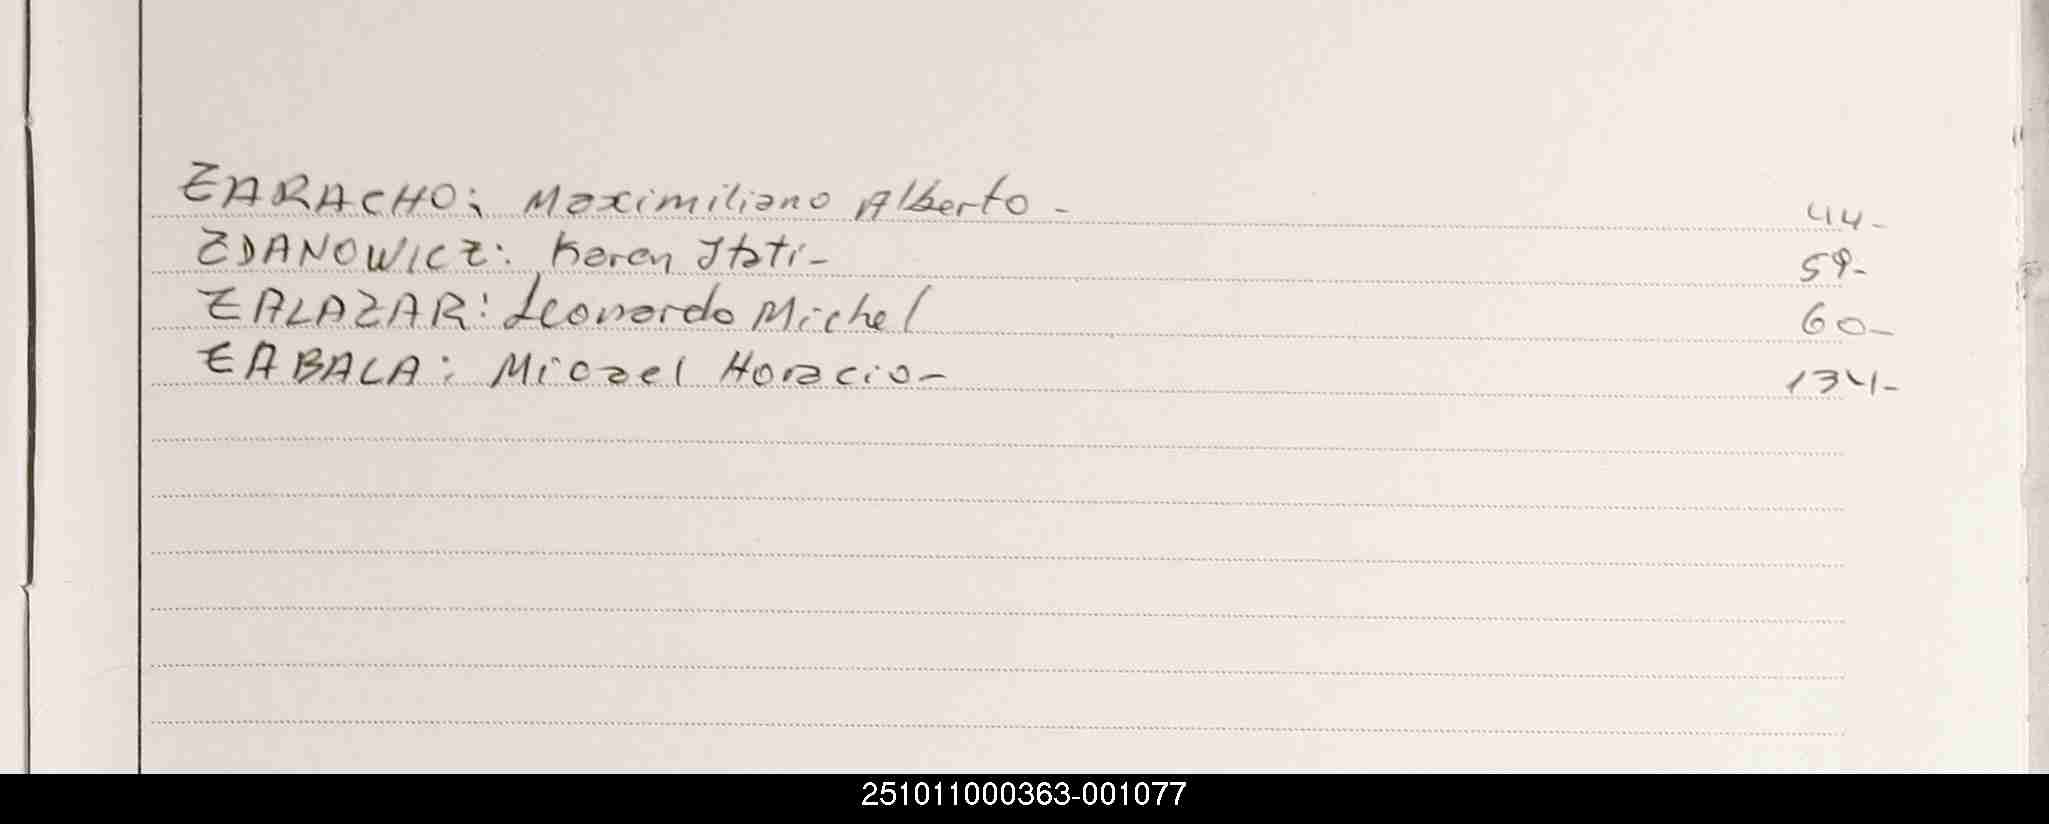 ZARACHO: Maximiliano Alberto - 44-
ZDANOWICZ: Karen Itati- 59-
ZALAZAR: Leonardo Michel 60-
ZABALA: Micael Horacio- 134-
251011000363-001077